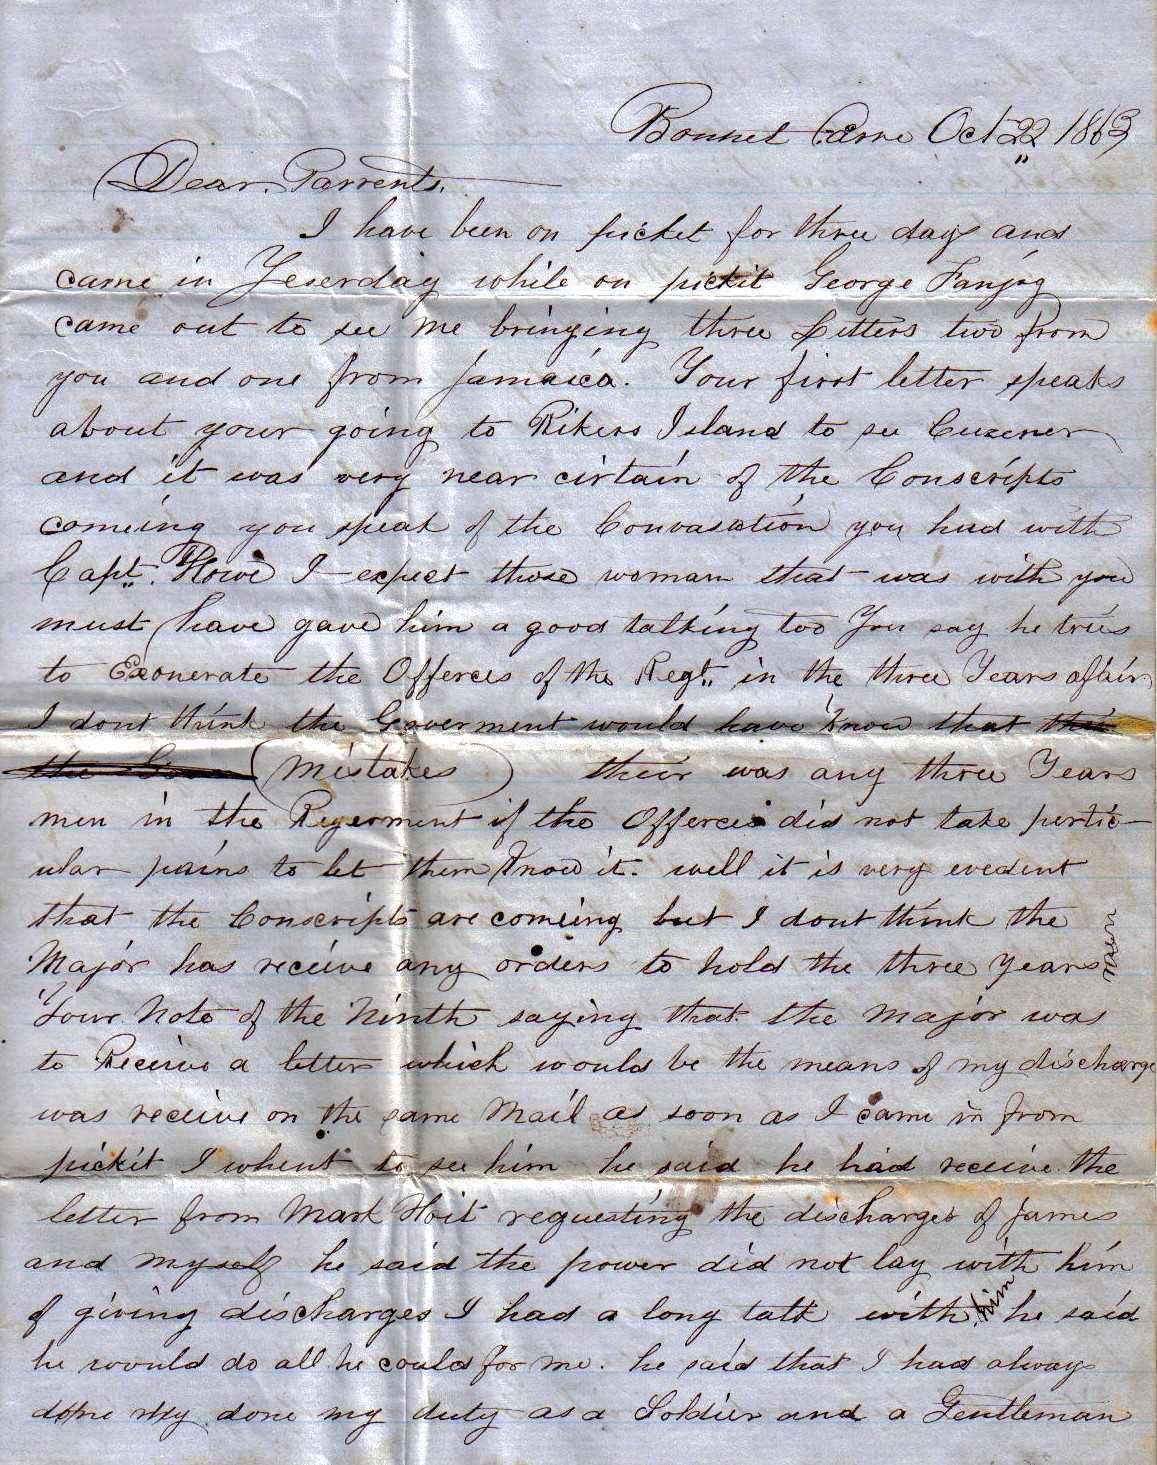 Bonnet Carre Oct 22 1863
Dear. Parrents.
I have been on picket for three days and
came in Yeserday while on pickit George Fanjoy
came out to see me bringing three Letters two from
you and one from Jamaica. Your first letter speaks
about your going to Rikers Island to see
and it was very near cirtain of the Conscripts
comeing you speak of the Convasation you had with
Capt. Howe I expect those woman that was with you
must have gave him a good talking too You say he tries
to Exonerate the Offerces of the Regt. in the three Years afair
I dont think the Goverment would have know that this
the Gove (Mistakes) their was any three Years
men in the Regerment if the Offerces did not take pertic-
ular pains to let them know it. well it is very evedent
that the Conscripts are comeing but I dont think the
Major has receive any orders to hold the three years men
Your Note of the Ninth saying that the Major was
to Receive a letter which would be the means of my discharge
was receive on the same Mail as soon as I came in from
pickit I whent to see him he said he had receive the
letter from Mark Hoit requesting the discharges of James
and myself he said the power did not lay with him
of giving discharges I had a long talk with him he said
he would do all he could for me. he said that I had always
done my done my duty as a Soldier and a Gentleman